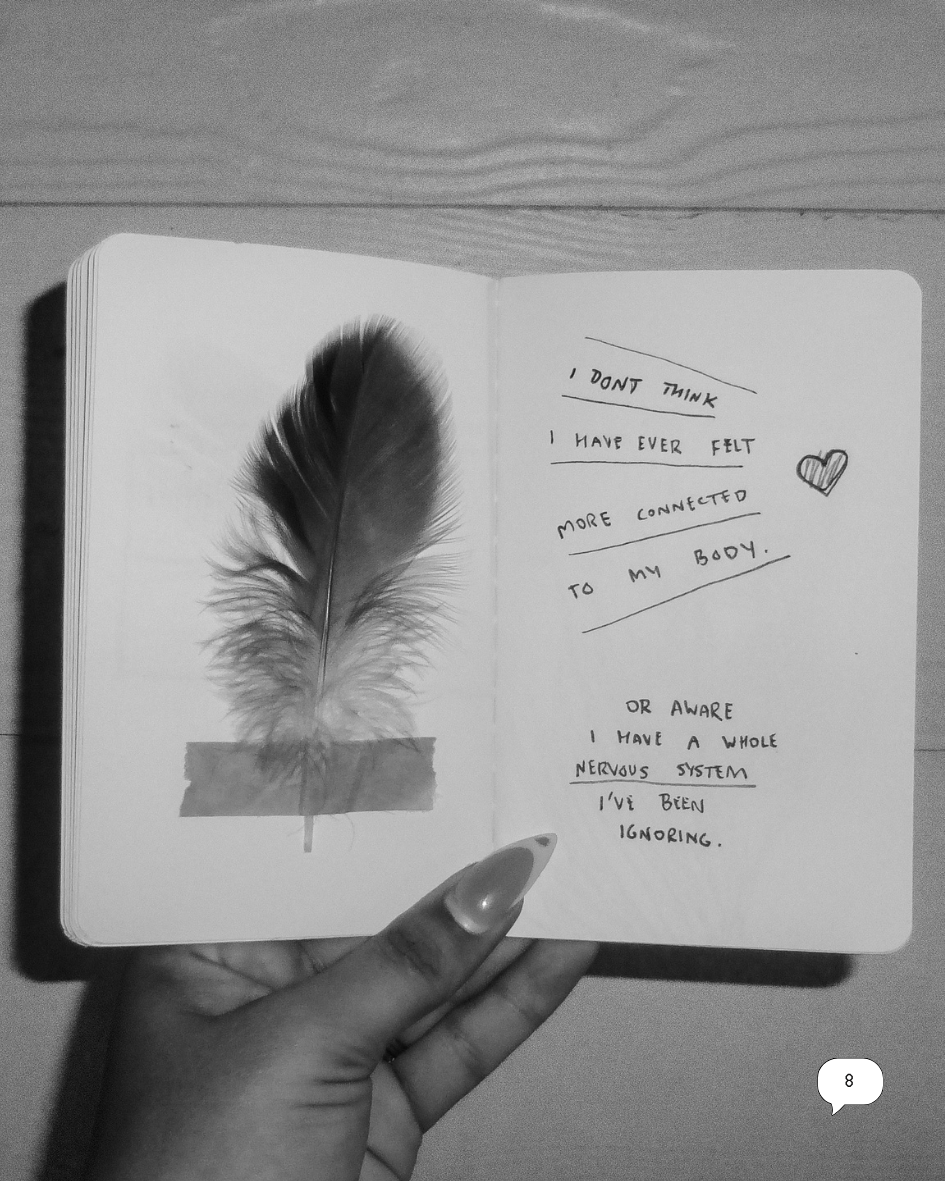 I DONT THINK
I HAVE EVER FELT
MORE CONNECTED
TO MY BODY.
OR AWARE
I HAVE A WHOLE
NERVOUS SYSTEM
I'VE BEEN
IGNORING.
8